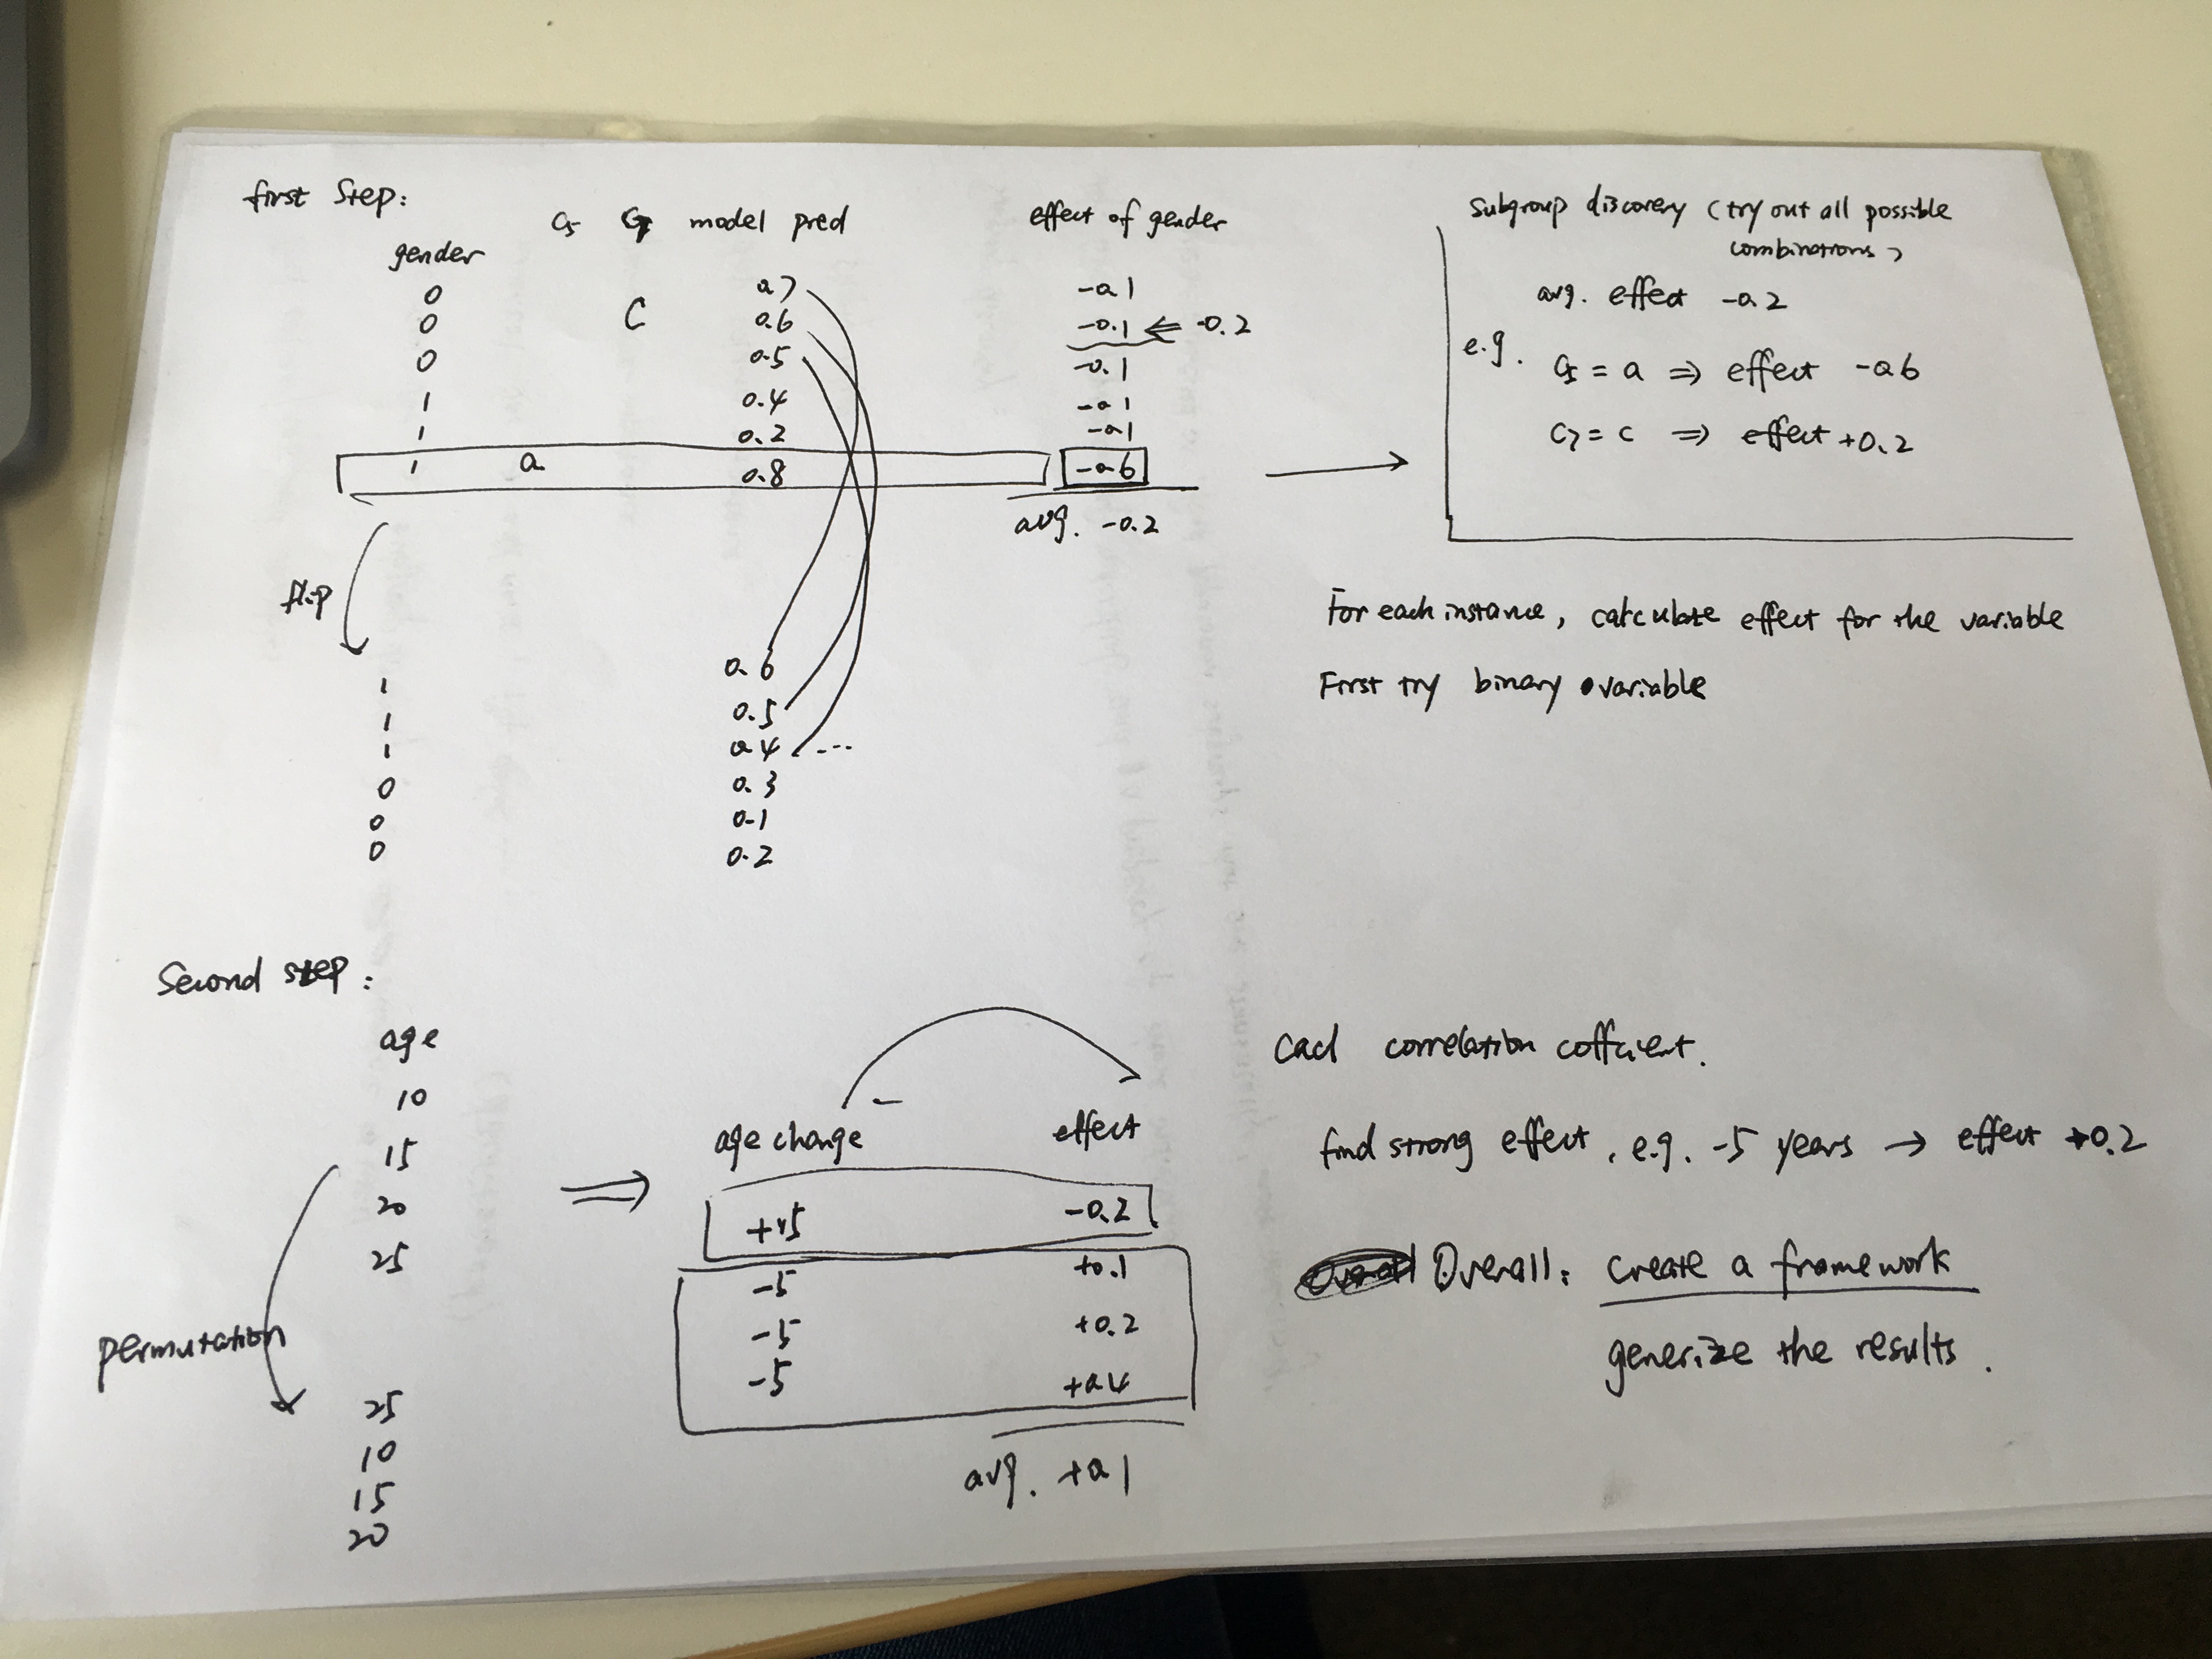 first Step:
gender G5 G7 model pred effect of gender
0 0.7 -0.1
0 C 0.6 -0.1 ⇐ -0.2
0 0.5 -0.1
1 0.4 -0.1
1 0.2 -0.1
1 a 0.8 -0.6
avg. -0.2
flip
1 0.6
1 0.5
1 0.4 ...
0 0.3
0 0.1
0 0.2
Subgroup discovery (try out all possible
combinations)
avg. effect -0.2
e.g. G5 = a ⇒ effect -0.6
G7 = c ⇒ effect +0.2
For each instance, calculate effect for the variable
First try binary variable
Second step:
age
10
15
20
25
permutation
25
10
15
20
⇒
age change - effect
+15 -0.2
-5 +0.1
-5 +0.2
-5 +0.4
avg. +0.1
Cacl correlation coffient.
find strong effect, e.g. -5 years → effect +0.2
Overall: create a framework
generize the results.